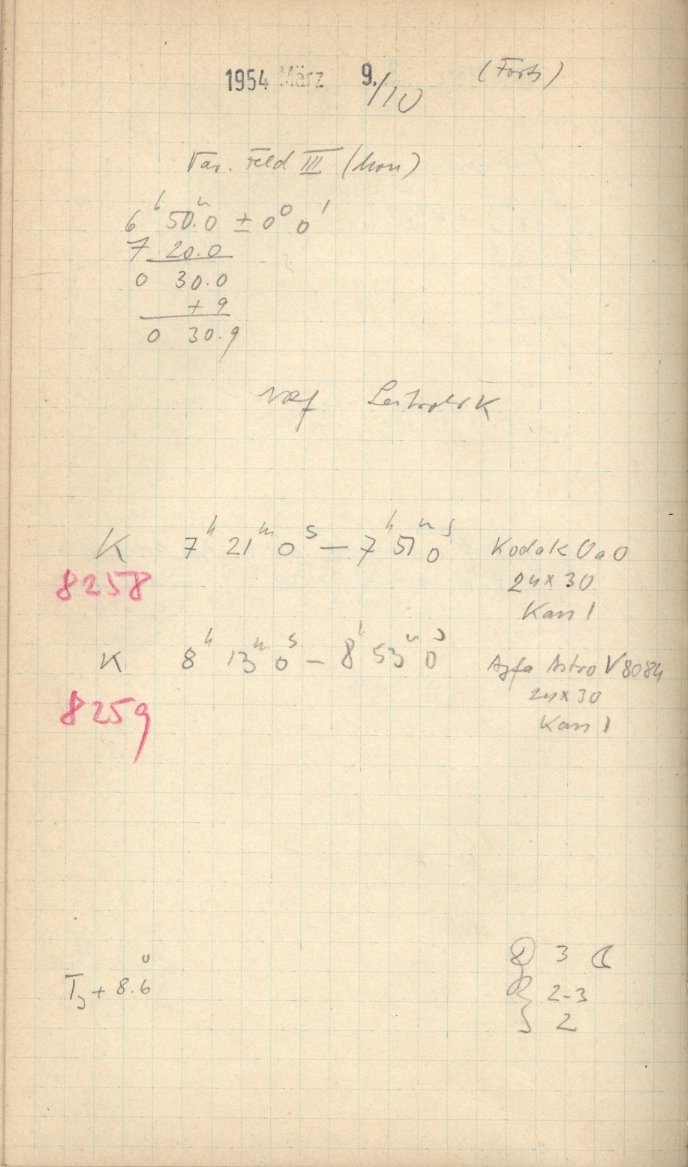 1954 März 9./10 (Forts)
Var. Feld III (Mon)
6ʰ 50.0 ± 0° 0'
7 20.0
0 30.0
+ 9
0 30.9
K 7ʰ 21ᵐ 0ˢ — 7ʰ 51ᵐ 0ˢ Kodak OaO
8258 24x30
Kass 1
K 8ʰ 13ᵐ 0ˢ — 8ʰ 53ᵐ 0ˢ Agfa Astro V 8084
24x30
8259 Kass 1
3 ☾
T + 8.6°
2-3
2